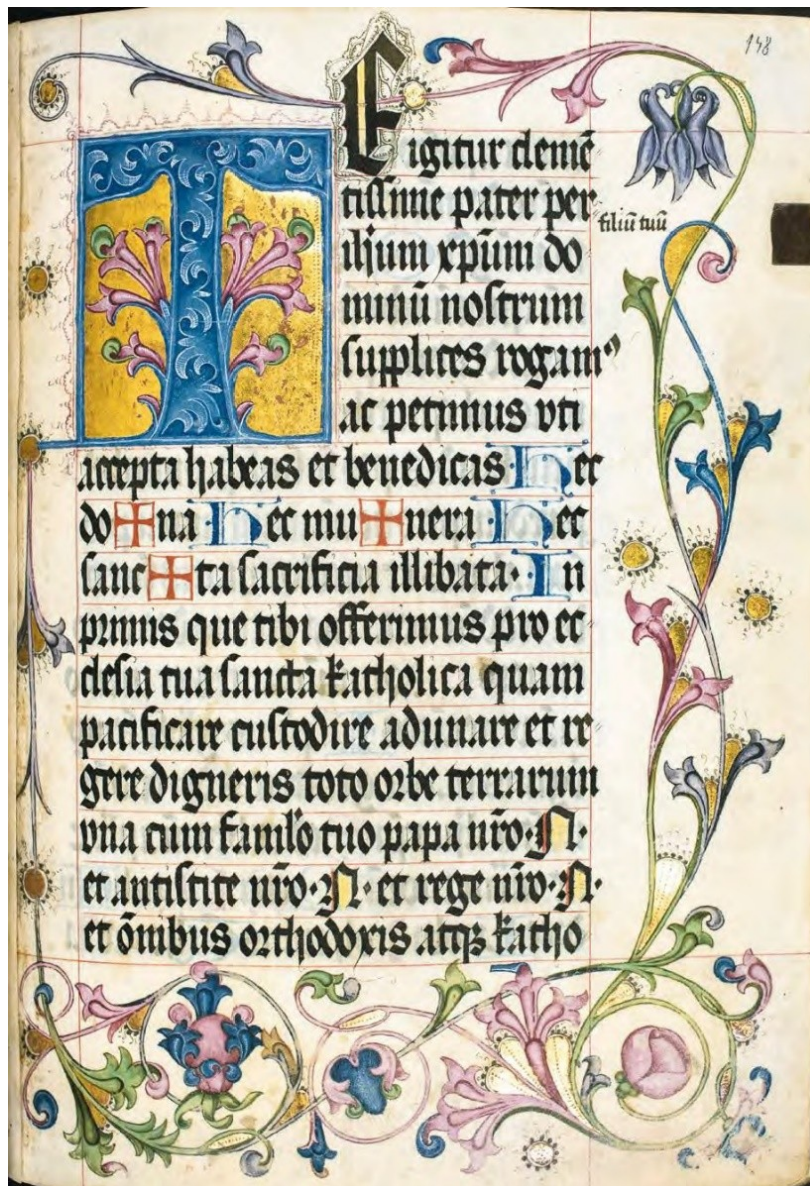 148
TE igitur clemē
tissime pater per
filiū tuū
ihsum xp̄um do
minū nostrum
supplices rogamꝰ
ac petimus vti
accepta habeas et benedicas Hec
do✠na Hec mu✠nera Hec
sanc✠ta sacrificia illibata· In
primis que tibi offerimus pro ec
clesia tua sancta katholica quam
pacificare custodire adunare et re
gere digneris toto orbe terrarum
vna cum famlo tuo papa nr̄o·N·
et antistite nr̄o·N· et rege nr̄o·N·
et om̄ibus orthodoxis atqꝫ katho